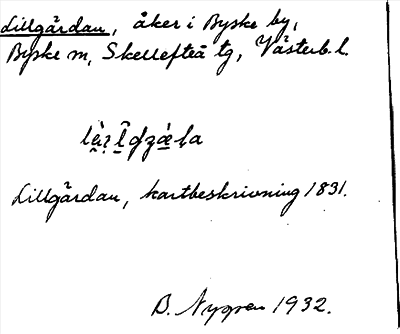 Lillgärdan, åker i Byske by,
Byske sn, Skellefteå tg, Västerb. l.
Lillgärdan, kartbeskrivning 1831.
B. Nygren 1932.